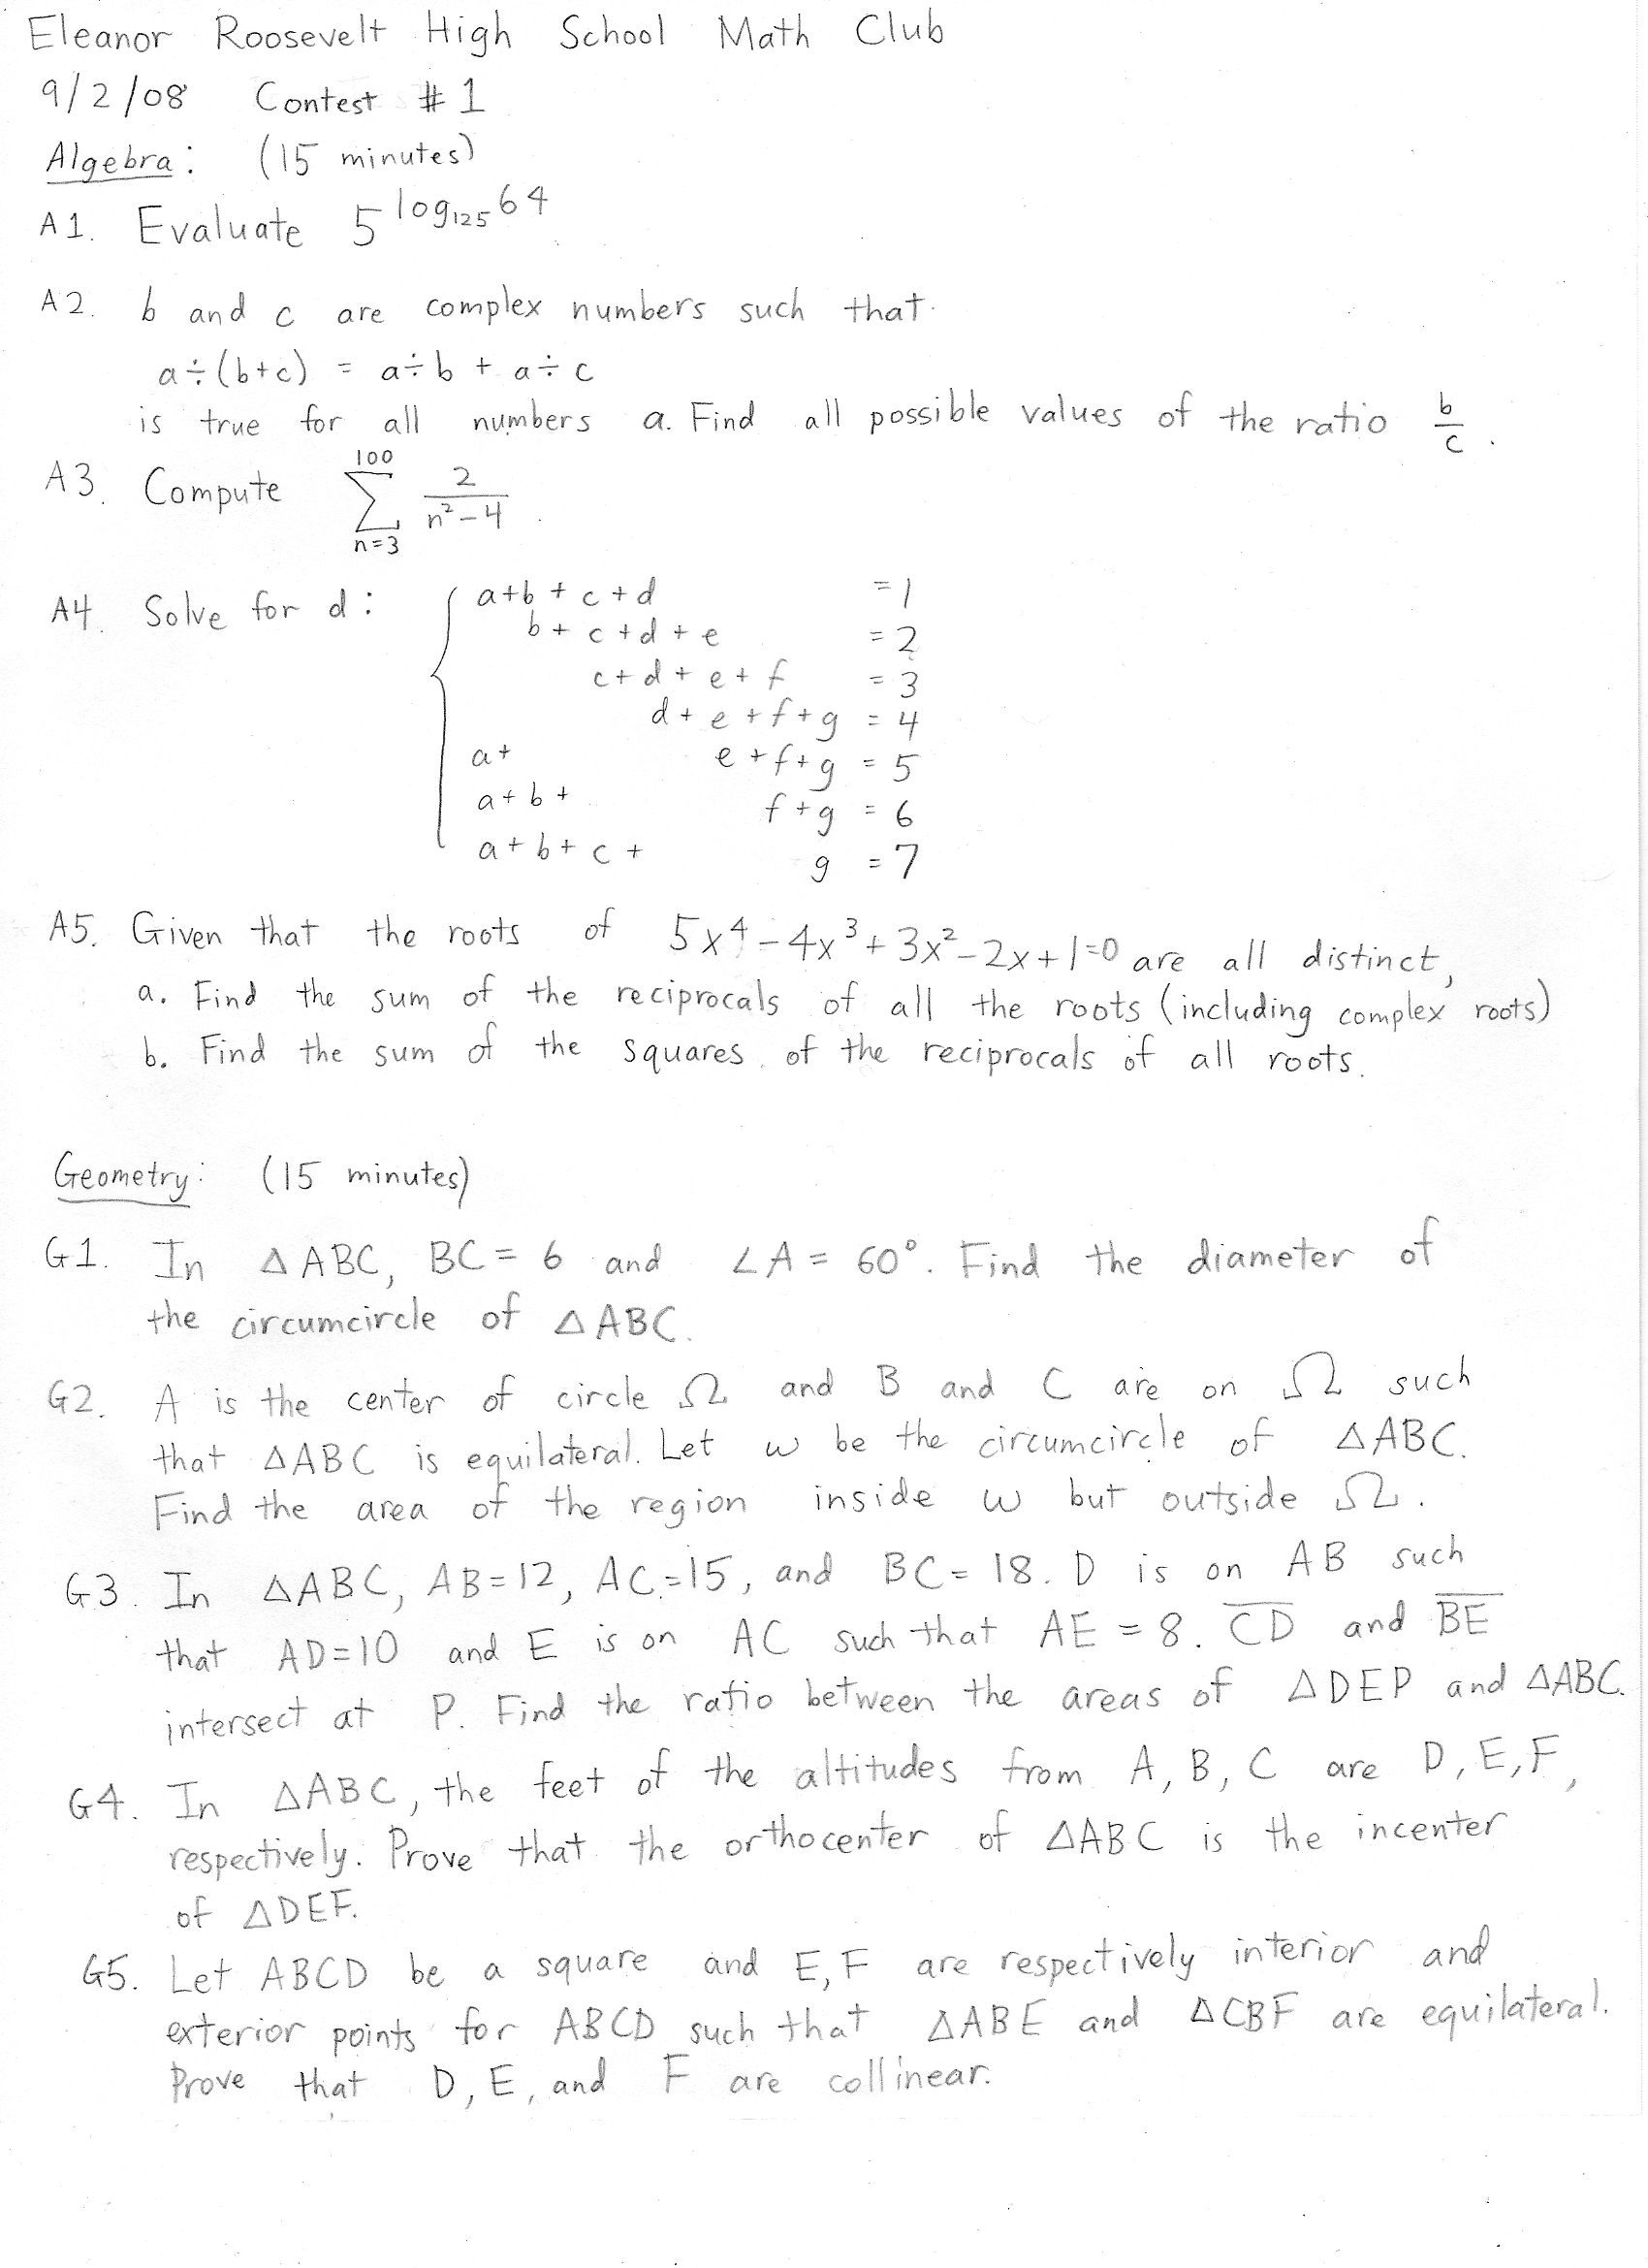 Eleanor Roosevelt High School Math Club
9/2/08 Contest #1
Algebra: (15 minutes)
A1. Evaluate 5^log₁₂₅64
A2. b and c are complex numbers such that
a÷(b+c) = a÷b + a÷c
is true for all numbers a. Find all possible values of the ratio b/c.
A3. Compute ∑_{n=3}^{100} 2/(n²-4).
A4. Solve for d: { a+b+c+d = 1
b+c+d+e = 2
c+d+e+f = 3
d+e+f+g = 4
a+ e+f+g = 5
a+b+ f+g = 6
a+b+c+ g = 7
A5. Given that the roots of 5x⁴-4x³+3x²-2x+1=0 are all distinct,
a. Find the sum of the reciprocals of all the roots (including complex roots)
b. Find the sum of the squares of the reciprocals of all roots.
Geometry: (15 minutes)
G1. In △ABC, BC = 6 and ∠A = 60°. Find the diameter of
the circumcircle of △ABC.
G2. A is the center of circle Ω and B and C are on Ω such
that △ABC is equilateral. Let ω be the circumcircle of △ABC.
Find the area of the region inside ω but outside Ω.
G3. In △ABC, AB=12, AC=15, and BC=18. D is on AB such
that AD=10 and E is on AC such that AE = 8. C̅D̅ and B̅E̅
intersect at P. Find the ratio between the areas of △DEP and △ABC.
G4. In △ABC, the feet of the altitudes from A, B, C are D, E, F,
respectively. Prove that the orthocenter of △ABC is the incenter
of △DEF.
G5. Let ABCD be a square and E, F are respectively interior and
exterior points for ABCD such that △ABE and △CBF are equilateral.
Prove that D, E, and F are collinear.